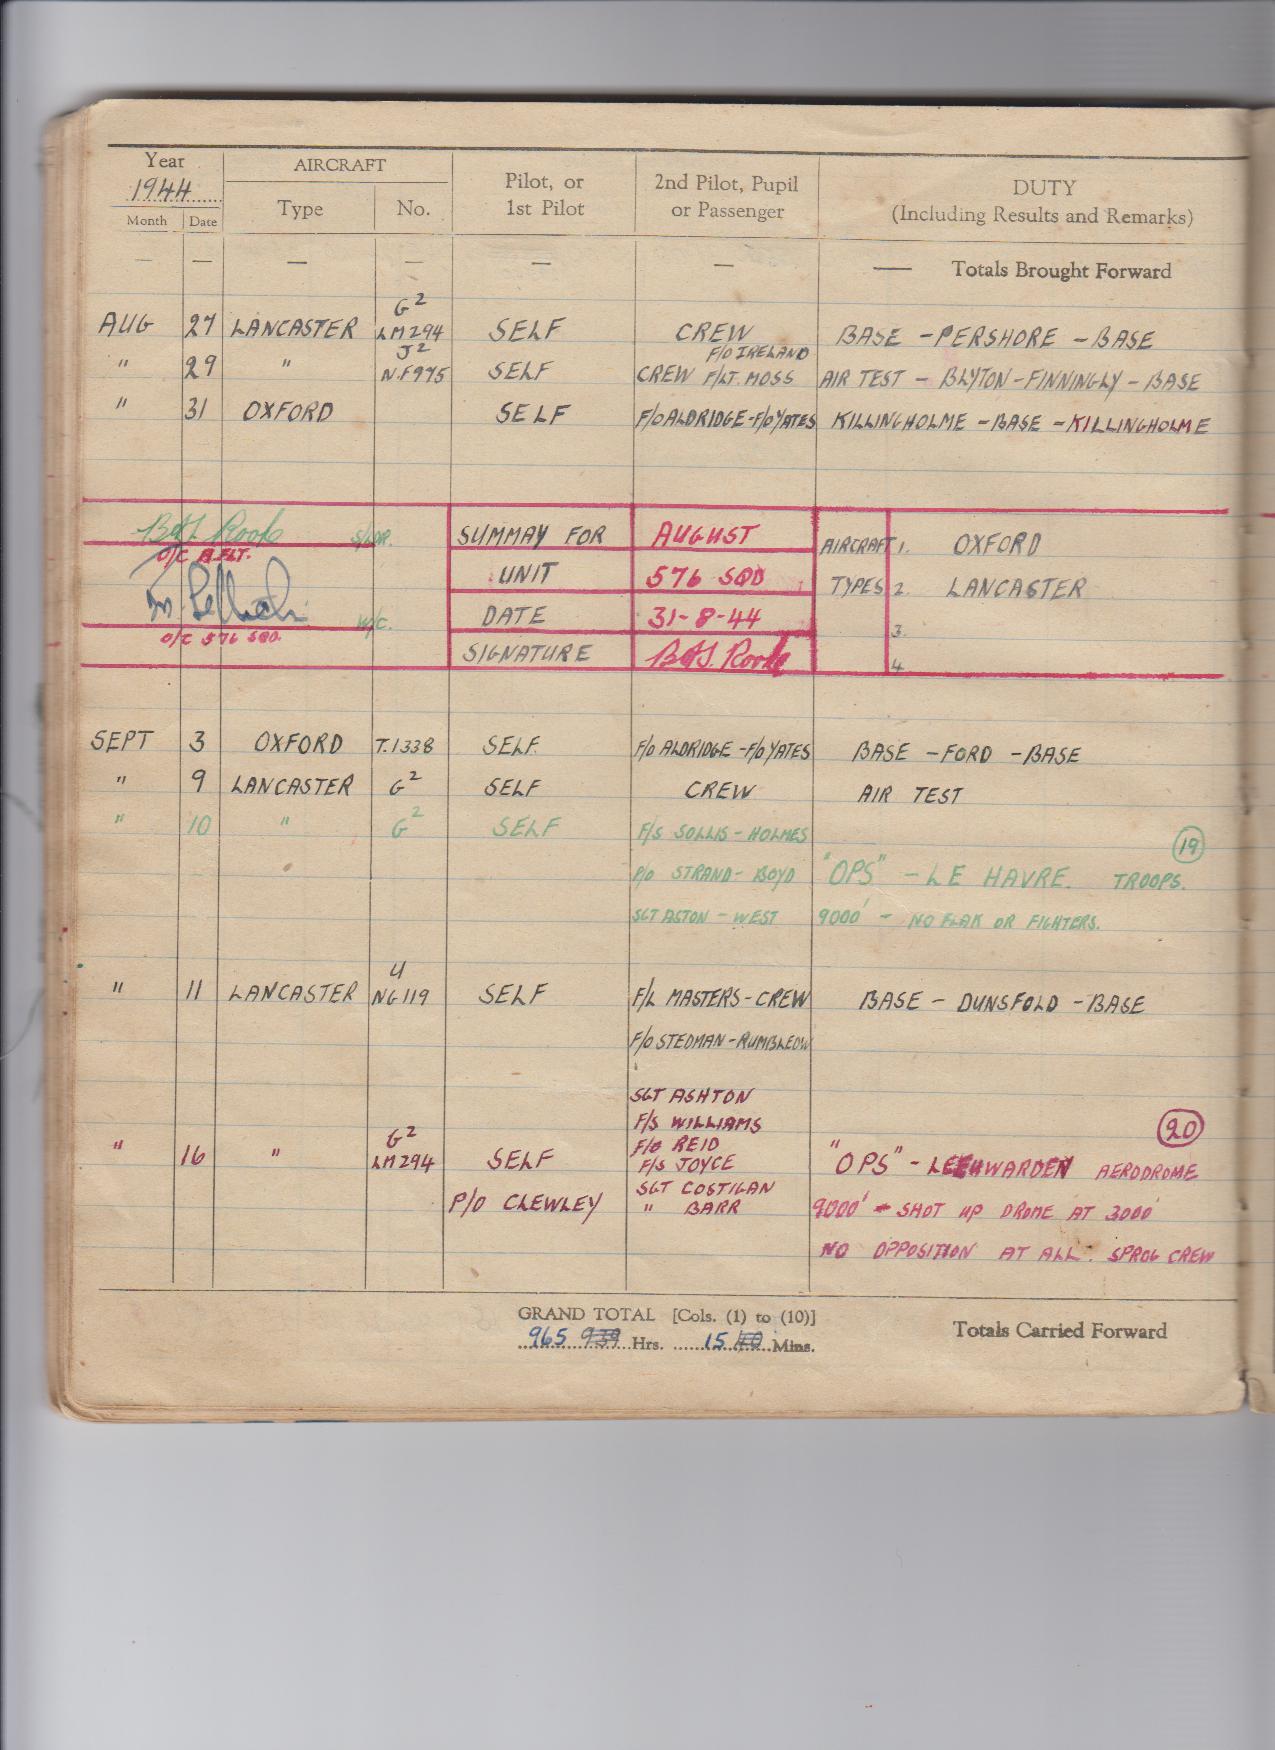 Year
1944
AIRCRAFT
Pilot, or
1st Pilot
2nd Pilot, Pupil
or Passenger
DUTY
(Including Results and Remarks)
Month Date Type No.
— — — — — — — Totals Brought Forward
G2
AUG 27 LANCASTER LM294 SELF CREW BASE - PERSHORE - BASE
J2 F/O IRELAND
" 29 " NF975 SELF CREW F/LT. MOSS AIR TEST - BLYTON - FINNINGLY - BASE
" 31 OXFORD SELF F/O ALDRIDGE - F/O YATES KILLINGHOLME - BASE - KILLINGHOLME
S/LDR.
O/C A FLT.
W/C.
O/C 576 SQD.
SUMMAY FOR AUGUST
UNIT 576 SQD
DATE 31-8-44
SIGNATURE
AIRCRAFT 1. OXFORD
TYPES 2. LANCASTER
3.
4.
SEPT 3 OXFORD T.1338 SELF F/O ALDRIDGE - F/O YATES BASE - FORD - BASE
" 9 LANCASTER G2 SELF CREW AIR TEST
" 10 " G2 SELF F/S SOLLIS - HOLMES 19
P/O STRAND - BOYD "OPS" - LE HAVRE. TROOPS.
SGT ASTON - WEST 9000' - NO FLAK OR FIGHTERS.
U
" 11 LANCASTER NG119 SELF F/L MASTERS - CREW BASE - DUNSFOLD - BASE
F/O STEDMAN - RUMBLEDW
SGT ASHTON
F/S WILLIAMS 20
G2 F/O REID
" 16 " LM294 SELF F/S JOYCE "OPS" - LEEUWARDEN AERODROME
P/O CLEWLEY SGT COSTIGAN
" BARR 9000' - SHOT UP DROME AT 3000'
NO OPPOSITION AT ALL. SPROG CREW
GRAND TOTAL [Cols. (1) to (10)]
965 939 Hrs. 15 40 Mins.
Totals Carried Forward